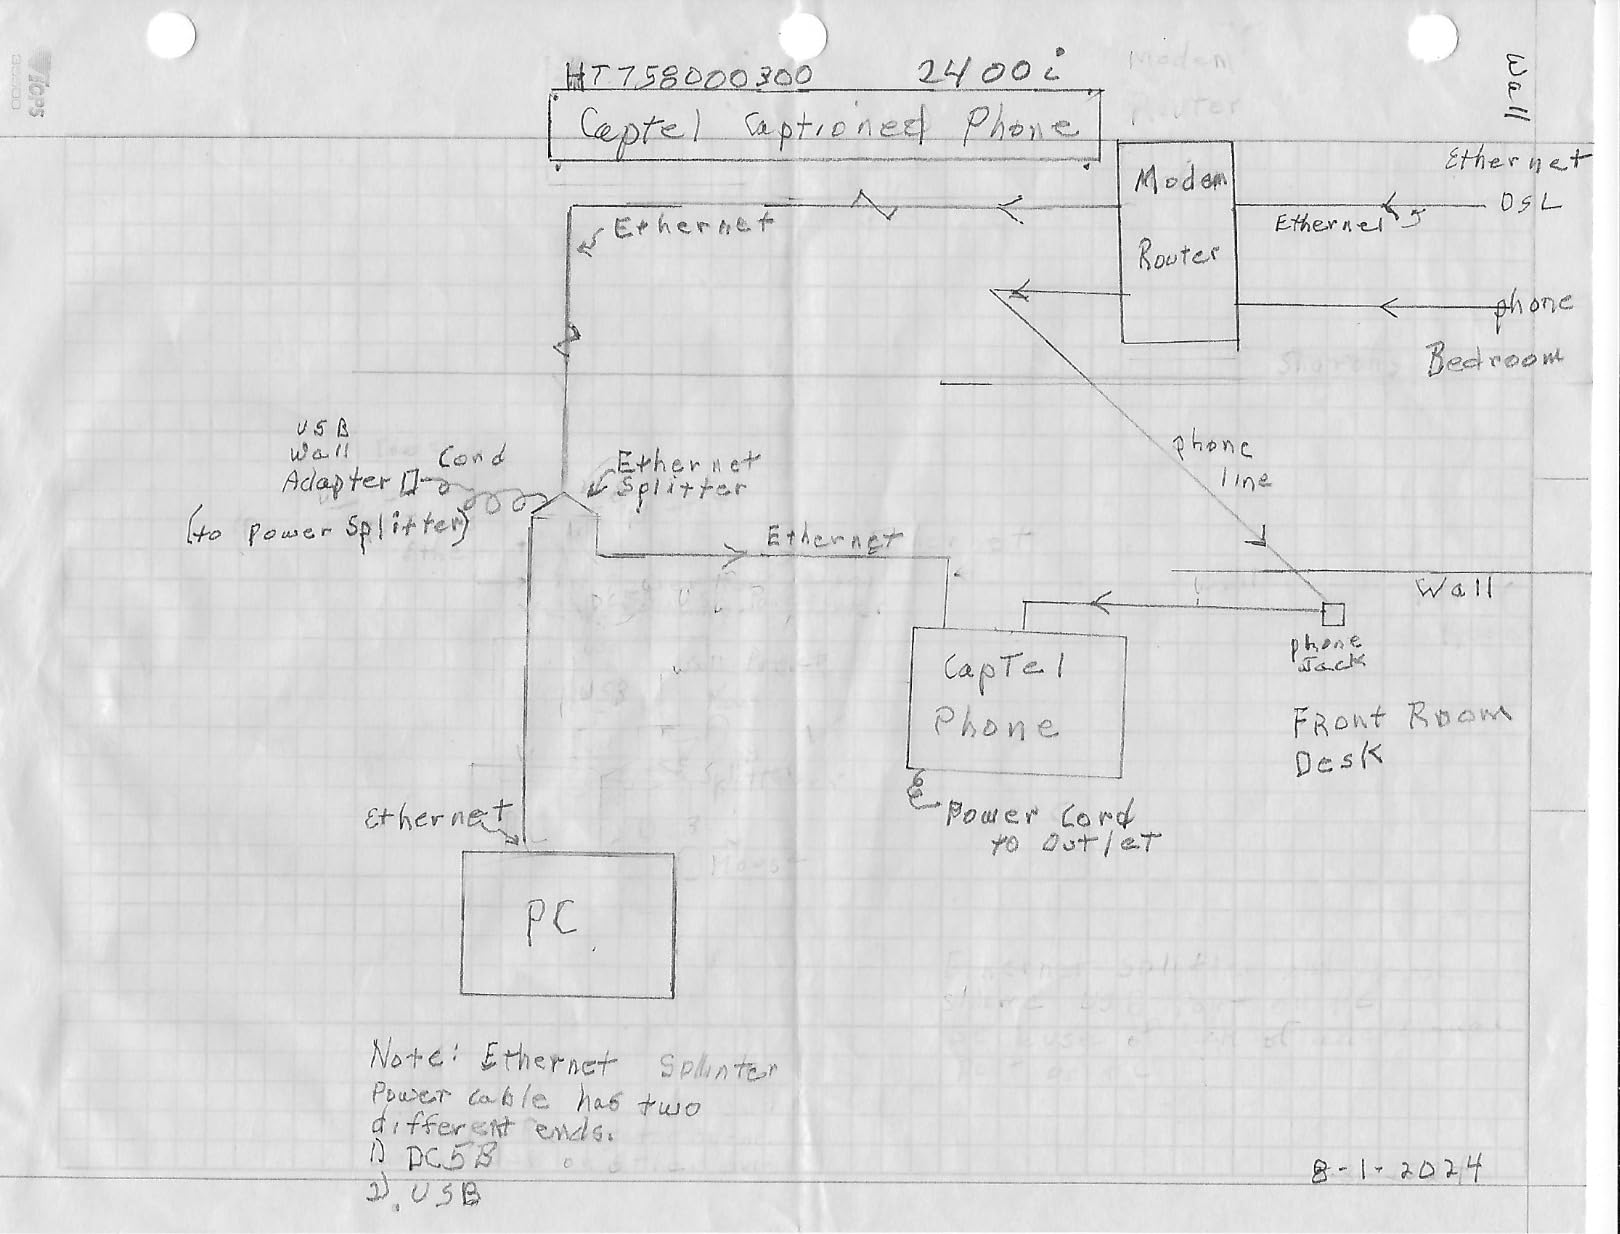 HT758000300 2400i
Captel Captioned Phone
Wall
Modem
Router
Modem
Router
Ethernet
DSL
Ethernet
phone
Bedroom
Ethernet
USB
Wall
Adapter
Cord
(to Power Splitter)
Ethernet
Splitter
phone
line
Ethernet
Wall
phone
Jack
CapTel
Phone
Front Room
Desk
Power Cord
to Outlet
Ethernet
PC
Note: Ethernet Splinter
Power cable has two
different ends.
1) DC5B
2). USB
8-1-2024